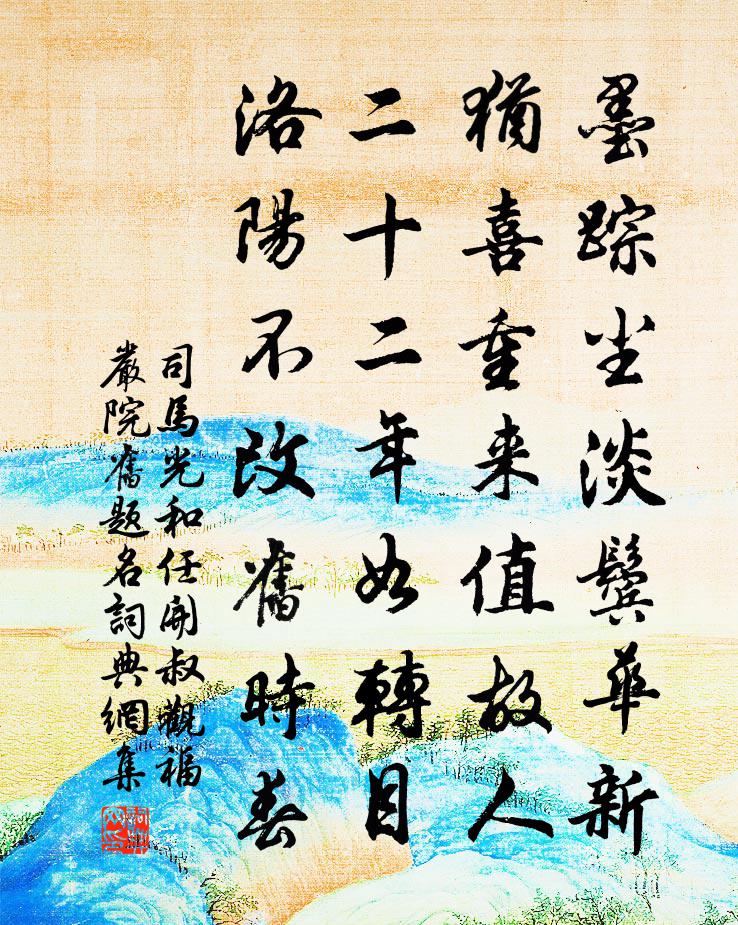 墨踪尘淡鬓華新
猶喜重来值故人
二十二年如轉目
洛陽不改舊時春
司馬光和任開叔觀福
嚴院舊題名詞典網集